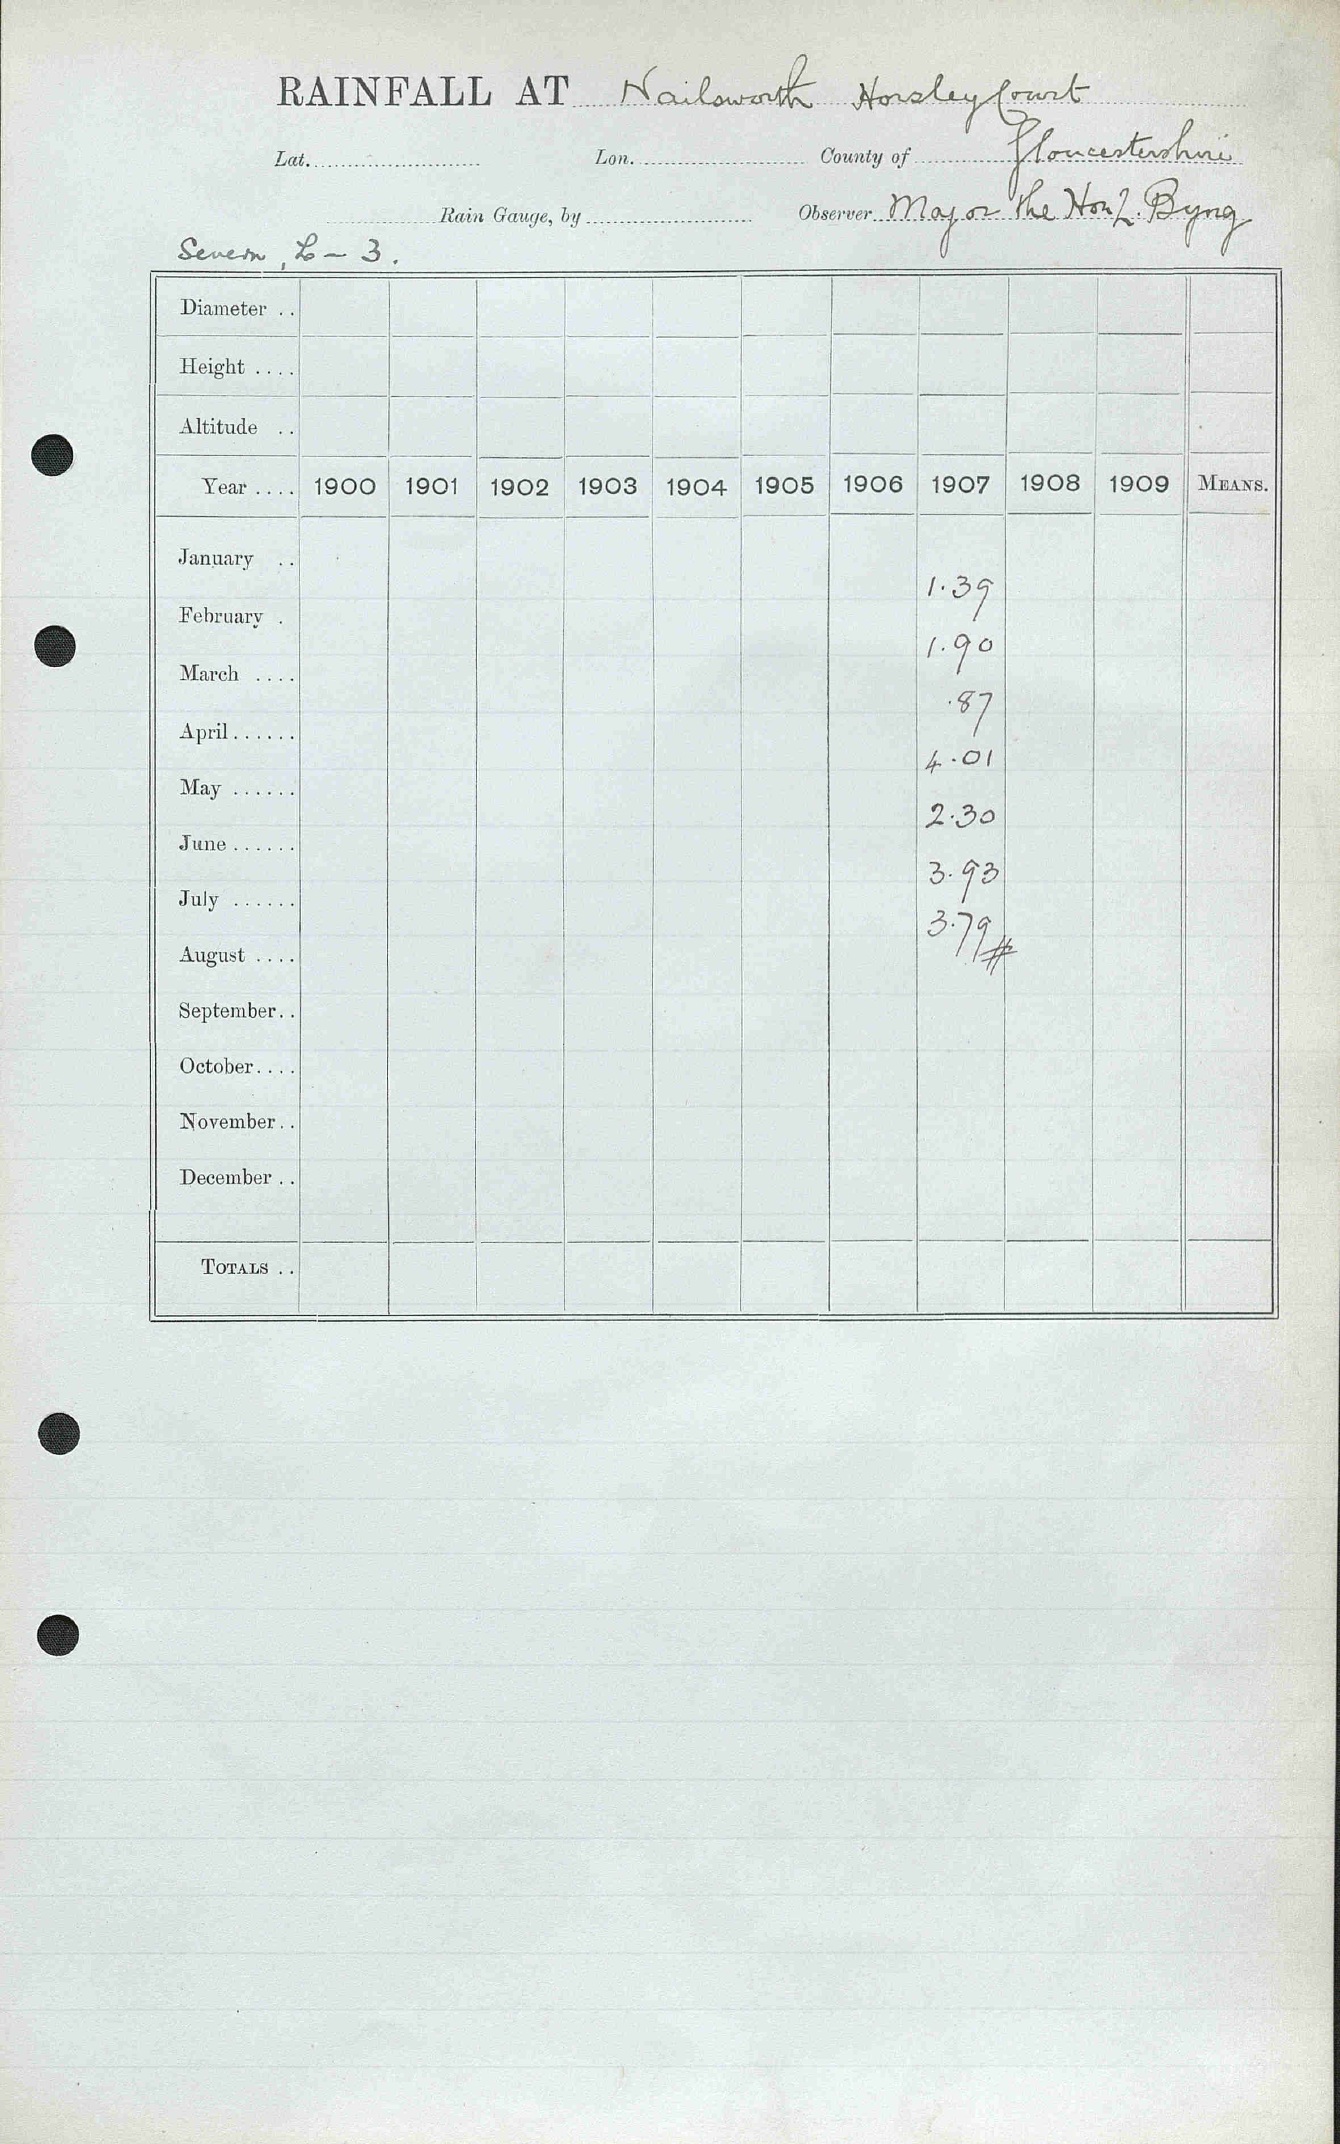 RAINFALL AT Nailsworth Horsley Court
Lat. Lon. County of Gloucestershire
Rain Gauge, by Observer Major the Hon L. Byng
Severn, L - 3.
Diameter ..
Height ....
Altitude ..
Year .... 1900 1901 1902 1903 1904 1905 1906 1907 1908 1909 MEANS.
January ..
1.39
February .
1.90
March ....
.87
April......
4.01
May ......
2.30
June ......
3.93
July ......
3.79 #
August ....
September..
October....
November..
December ..
TOTALS ..